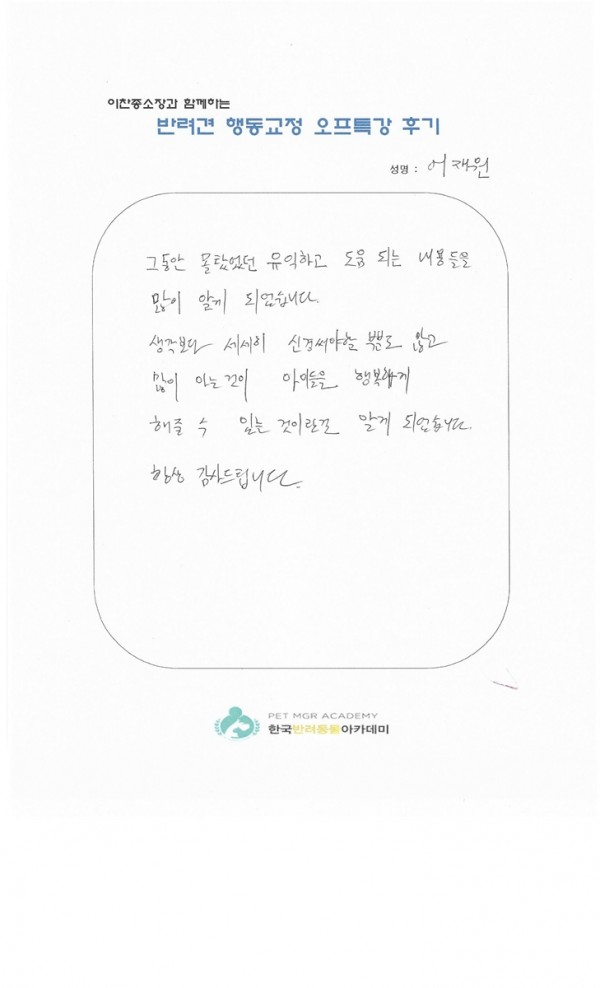 이찬종소장과 함께하는
반려견 행동교정 오프특강 후기
성명 : 어재원
그동안 몰랐었던 유익하고 도움 되는 내용들을
많이 알게 되었습니다.
생각보다 세세히 신경써야할 뿐만 않고
많이 아는것이 아이들을 행복하게
해줄 수 있는 것이란걸 알게 되었습니다.
항상 감사드립니다.
PET MGR ACADEMY
한국반려동물아카데미